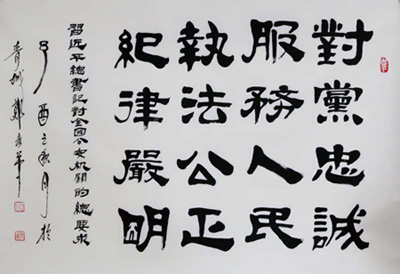 對黨忠誠
服務人民
執法公正
紀律嚴明
習近平總書記對全国公安机關的總要求
丁酉之秋月於
青州鄭